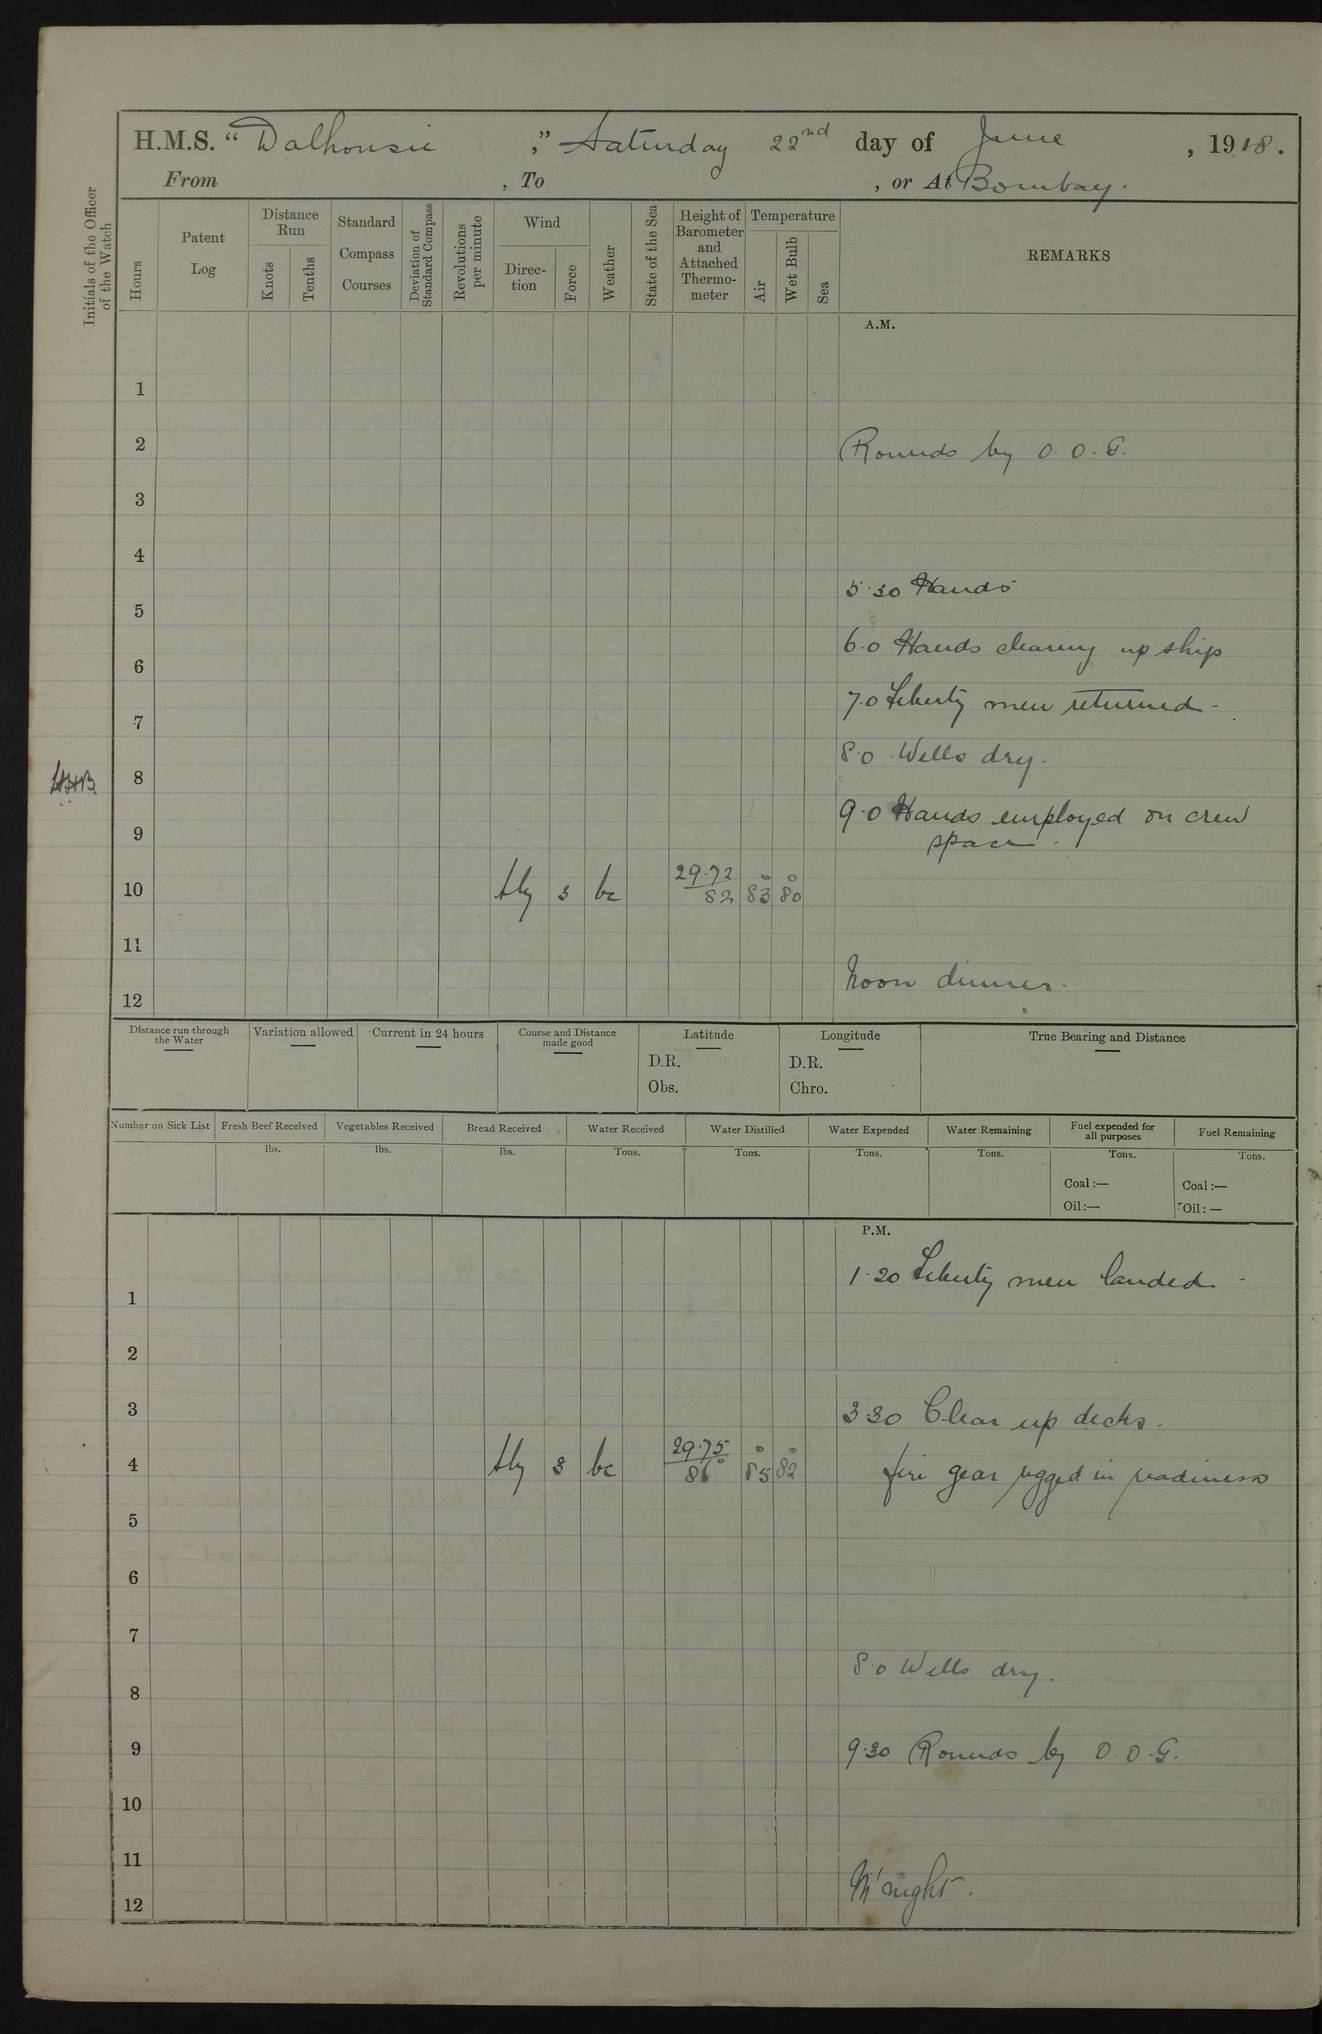 H.M.S. “Dalhousie ,” Saturday 22nd day of June , 1918.
From , To , or At Bombay.
Initials of the Officer of the Watch
Hours
Patent Log
Distance Run
Knots
Tenths
Standard Compass Courses
Deviation of Standard Compass
Revolutions per minute
Wind
Direc-tion
Force
Weather
State of the Sea
Height of Barometer and Attached Thermo-meter
Temperature
Air
Wet Bulb
Sea
REMARKS
A.M.
1
2 Rounds by O.O.G.
3
4
5.30 Hands
5
6.0 Hands clearing up ship
6
7.0 Liberty men returned -
7
8.0 Wells dry.
8
9.0 Hands employed on crew
9 space.
10 sly 3 bc 29.72 82 83° 80°
11
Noon dinner.
12
Distance run through the Water
Variation allowed
Current in 24 hours
Course and Distance made good
Latitude
D.R.
Obs.
Longitude
D.R.
Chro.
True Bearing and Distance
Number on Sick List
Fresh Beef Received
lbs.
Vegetables Received
lbs.
Bread Received
lbs.
Water Received
Tons.
Water Distilled
Tons.
Water Expended
Tons.
Water Remaining
Tons.
Fuel expended for all purposes
Tons.
Coal :—
Oil:—
Fuel Remaining
Tons.
Coal :—
Oil: —
P.M.
1.20 Liberty men landed -
1
2
3 3.30 Clear up decks.
4 sly 3 bc 29.75 86° 85° 82° fire gear rigged in readiness
5
6
7
8.0 Wells dry.
8
9 9.30 Rounds by O.O.G.
10
11
M'night.
12